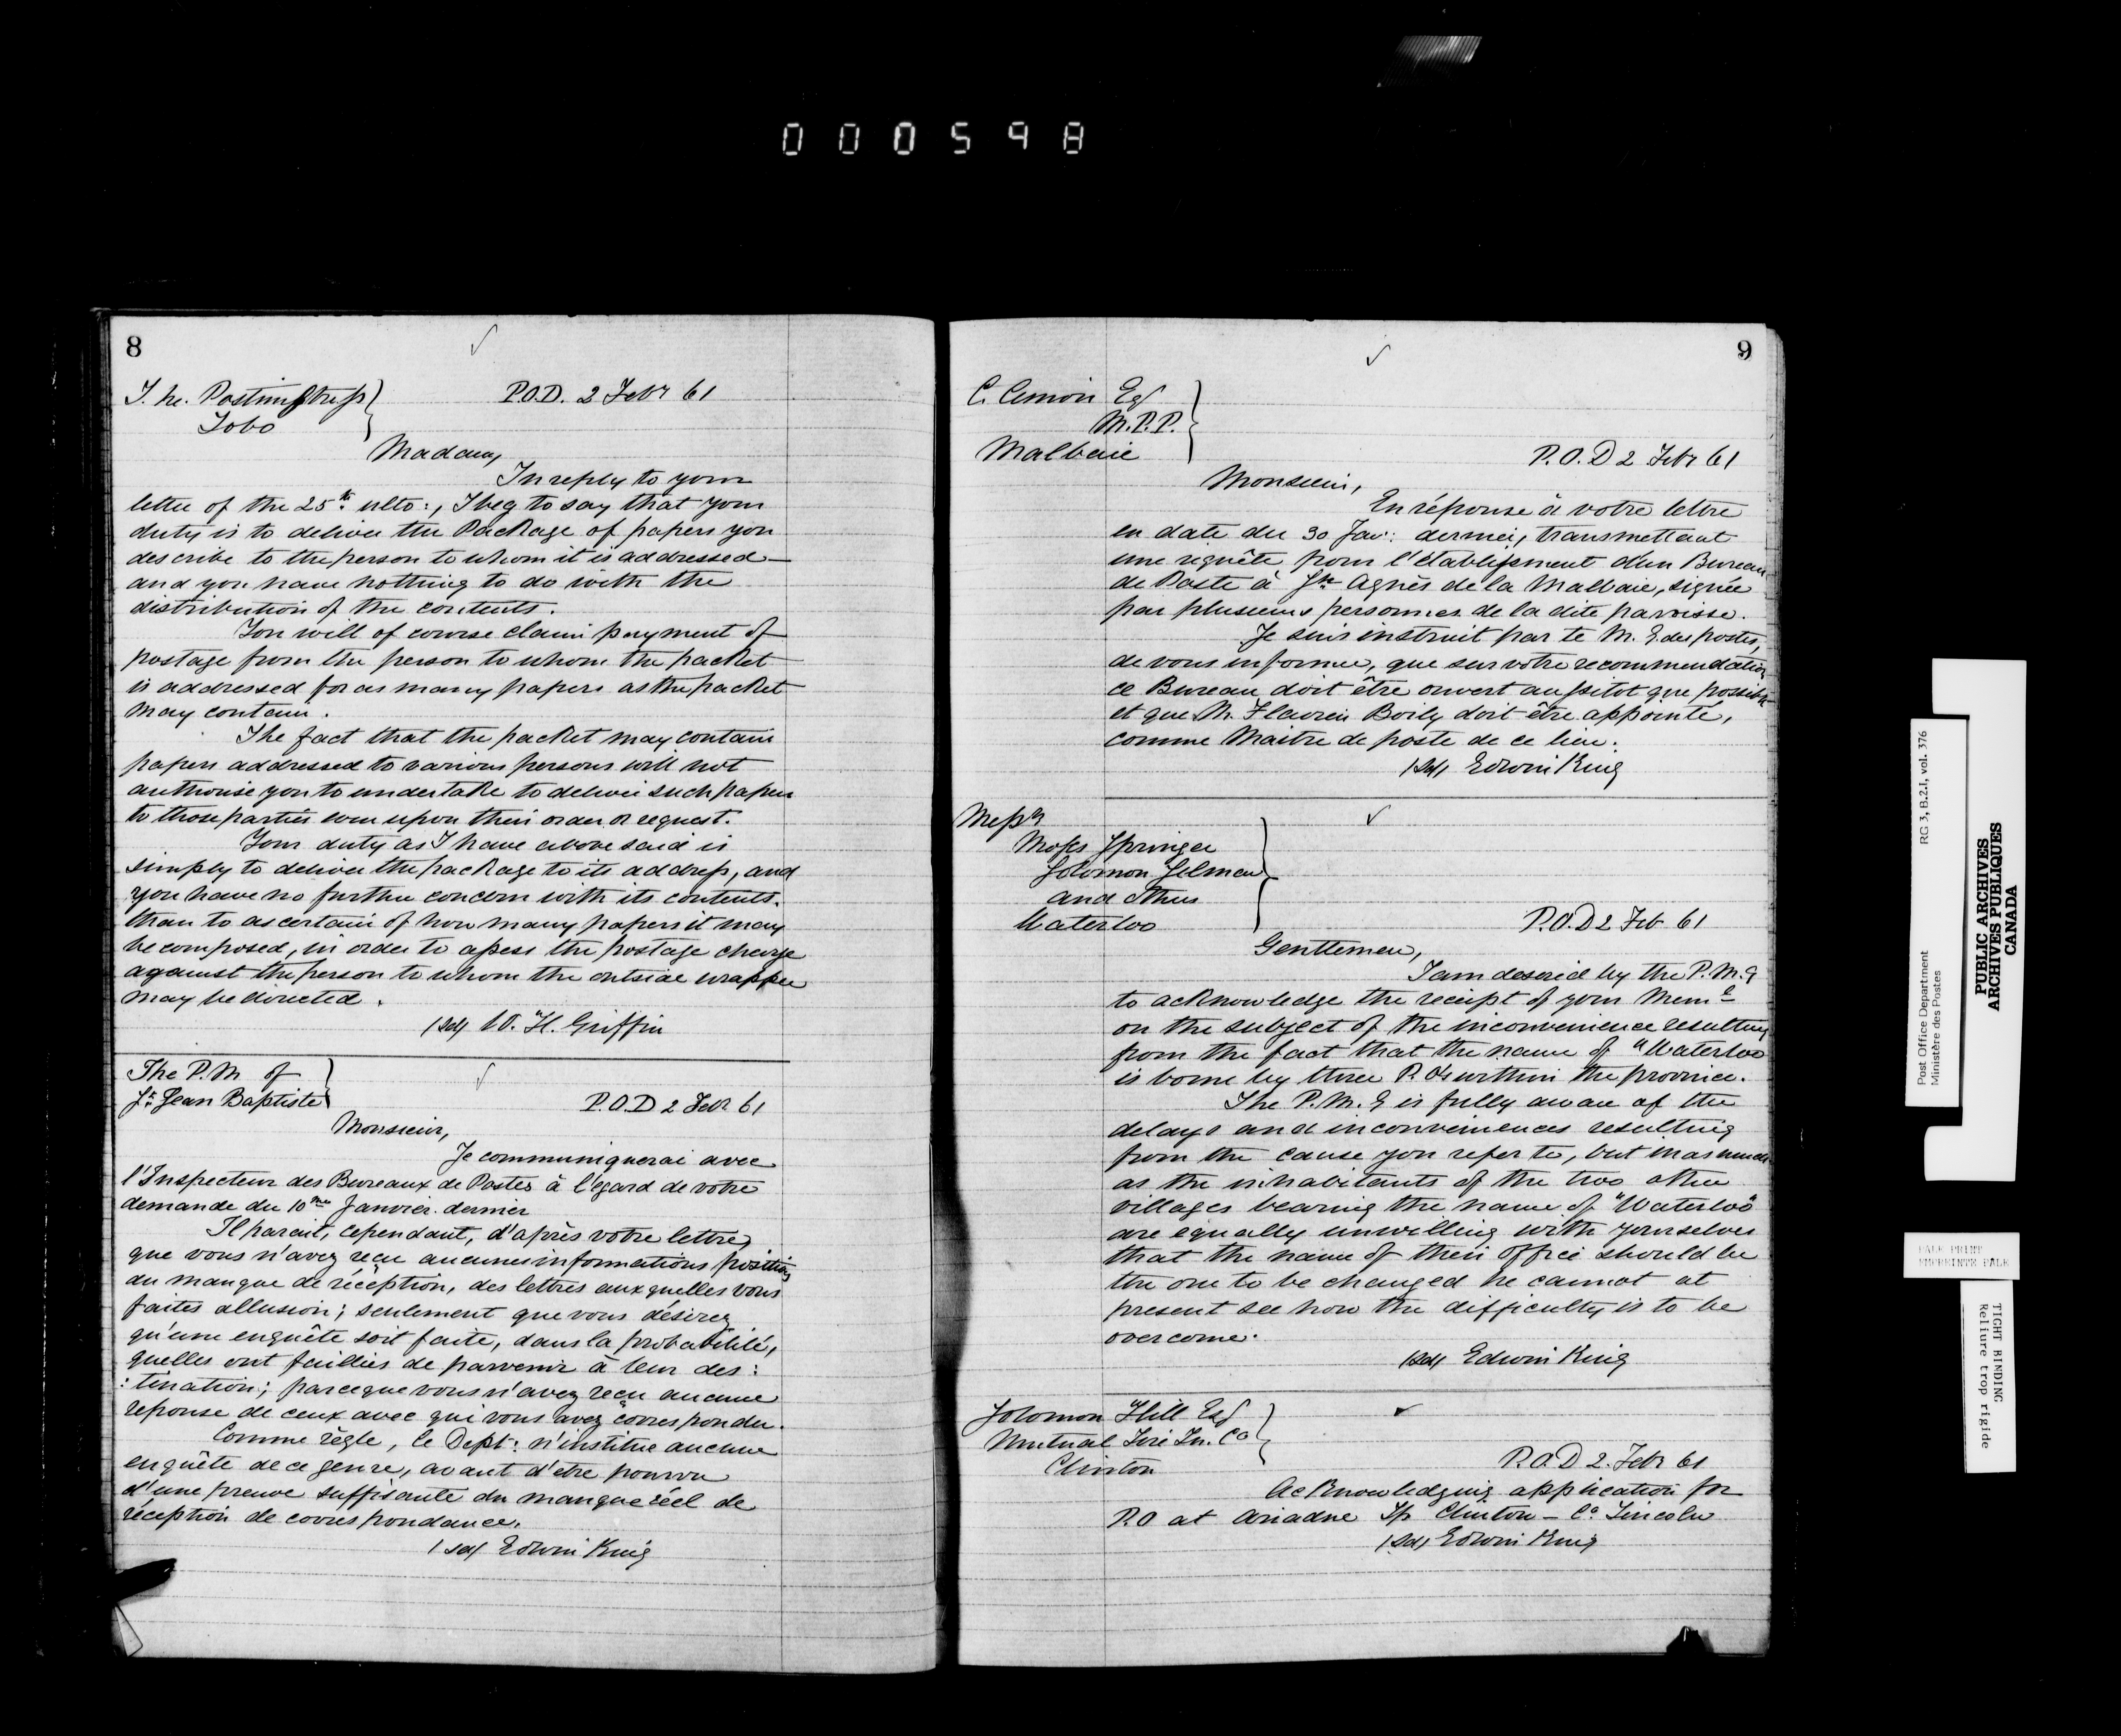 000598
8
The Postmistress
Lobo
P.O.D. 2 Febr 61
Madam,
In reply to your
letter of the 25th ulto:, I beg to say that your
duty is to deliver the Package of papers you
describe to the person to whom it is addressed—
and you have nothing to do with the
distribution of the contents.
You will of course claim payment of
postage from the person to whom the packet
is addressed for as many papers as the packet
may contain.
The fact that the packet may contain
papers addressed to various persons will not
authorise you to undertake to deliver such papers
to those parties even upon their order or request.
Your duty as I have above said is
simply to deliver the package to its address, and
you have no further concern with its contents.
than to ascertain of how many papers it may
be composed, in order to assess the postage charge
against the person to whom the outside wrapper
may be directed.
(sd) W. H. Griffin
The P.M. of
St Jean Baptiste
P.O.D 2 Febr 61
Monsieur,
Je communiquerai avec
l'Inspecteur des Bureaux de Postes à l'égard de votre
demande du 10me Janvier dernier
Il parait, cependant, d'après votre lettre,
que vous n'avez reçu aucunes informations positives
du manque de réception, des lettres auxquelles vous
faites allusion; seulement que vous désirez
qu'une enquête soit faite, dans la probabilité,
quelles ont faillies de parvenir à leur des:
:tination; parceque vous n'avez reçu aucune
reponse de ceux avec qui vous avez correspondu.
Comme règle, le Dept: n'institue aucune
enquête de ce genre, avant d'etre pourvu
d'une preuve suffisante du manque réel de
réception de correspondance.
(sd) Edwin King
9
C. Cimon Esq
M.P.P.
Malbaie
P.O.D 2 Febr 61
Monsieur,
En réponse à votre lettre
en date du 30 Janr: dernier, transmettant
une requête pour l'établissement d'un Bureau
de Poste à Ste Agnès de la Malbaie, signée
par plusieurs personnes de la dite paroisse.
Je suis instruit par le M. G. des postes,
de vous informer, que sur votre recommendation
ce Bureau doit être ouvert aussitot que possible
et que M. Flavien Boily doit être appointé,
comme Maitre de poste de ce lieu.
(sd) Edwin King
Messrs
Moses Springer
Solomon
and others
Waterloo
P.O.D 2 Feb 61
Gentlemen,
I am desired by the P.M.G
to acknowledge the receipt of your Meml
on the subject of the inconvenience resulting
from the fact that the name of "Waterloo
is borne by three P.O's within the province.
The P.M.G is fully aware of the
delays and inconveniences resulting
from the cause you refer to, but inasmuch
as the inhabitants of the two other
villages bearing the name of "Waterloo"
are equally unwilling with yourselves
that the name of their office should be
the one to be changed he cannot at
present see how the difficulty is to be
overcome.
(sd) Edwin King
Solomon Hill Esq
Mutual Fire In. Co
Clinton
P.O.D 2. Febr 61
Acknowledging application for
P.O at Ariadne Tp Clinton – Co Lincoln
(sd) Edwin King
Post Office Department RG 3, B.2.1, vol. 376
Ministère des Postes
PUBLIC ARCHIVES
ARCHIVES PUBLIQUES
CANADA
PALE PRINT
EMPREINTE PALE
TIGHT BINDING
Reliure trop rigide